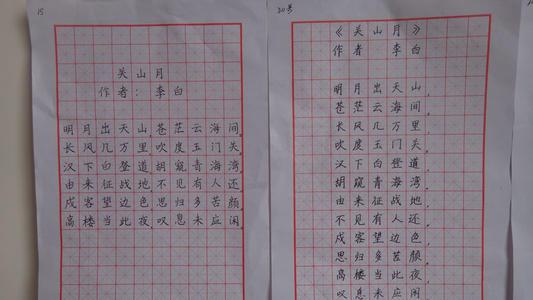 15
关山月
作者：李白
明月出天山，苍茫云海间。
长风几万里，吹度玉门关。
汉下白登道，胡窥青海湾。
由来征战地，不见有人还。
戍客望边色，思归多苦颜。
高楼当此夜，叹息未应闲。
20号
《关山月》
作者 李白
明月出天山，
苍茫云海间。
长风几万里
吹度玉门关。
汉下白登道，
胡窥青海湾。
由来征战地，
不见有人还。
戍客望边色，
思归多苦颜。
高楼当此夜，
叹息未应闲